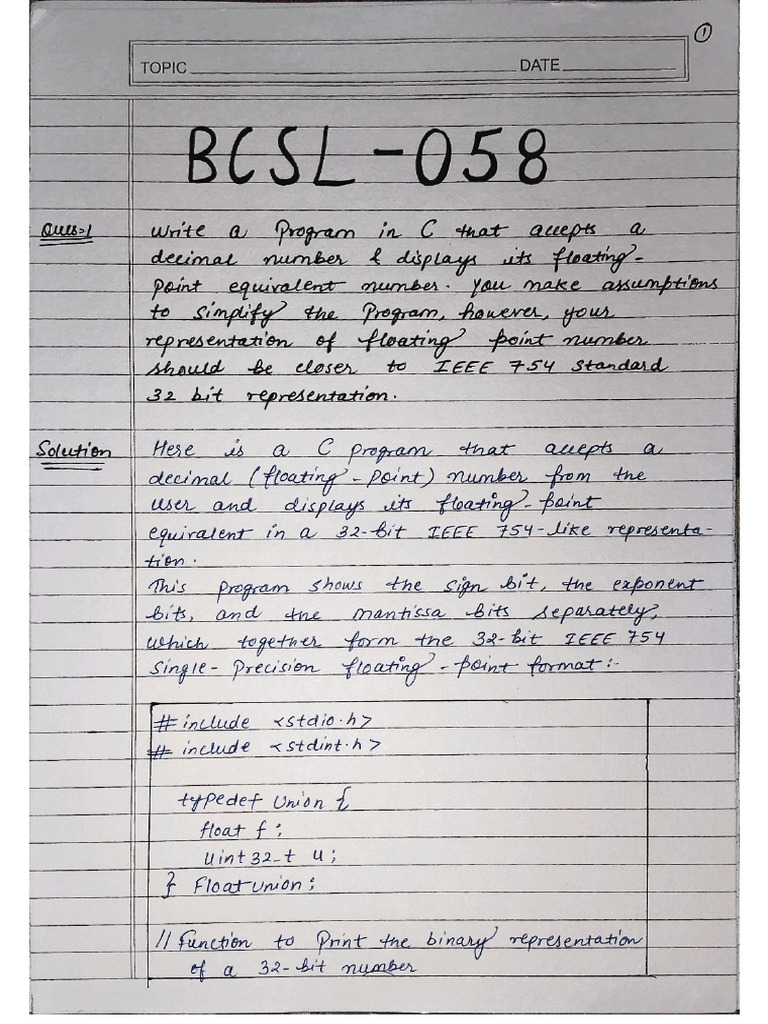 1
TOPIC DATE
BCSL-058
Ques-1 Write a Program in C that accepts a
decimal number & displays its floating-
point equivalent number. You make assumptions
to simplify the Program, however, your
representation of floating point number
should be closer to IEEE 754 Standard
32 bit representation.
Solution Here is a C program that accepts a
decimal (floating-point) number from the
user and displays its floating-point
equivalent in a 32-bit IEEE 754-like representa-
tion.
This program shows the sign bit, the exponent
bits, and the mantissa bits separately,
which together form the 32-bit IEEE 754
single-precision floating-point format:-
# include <stdio.h>
# include <stdint.h>
typedef Union {
float f;
uint32_t u;
} Floatunion;
// Function to Print the binary representation
of a 32-bit number